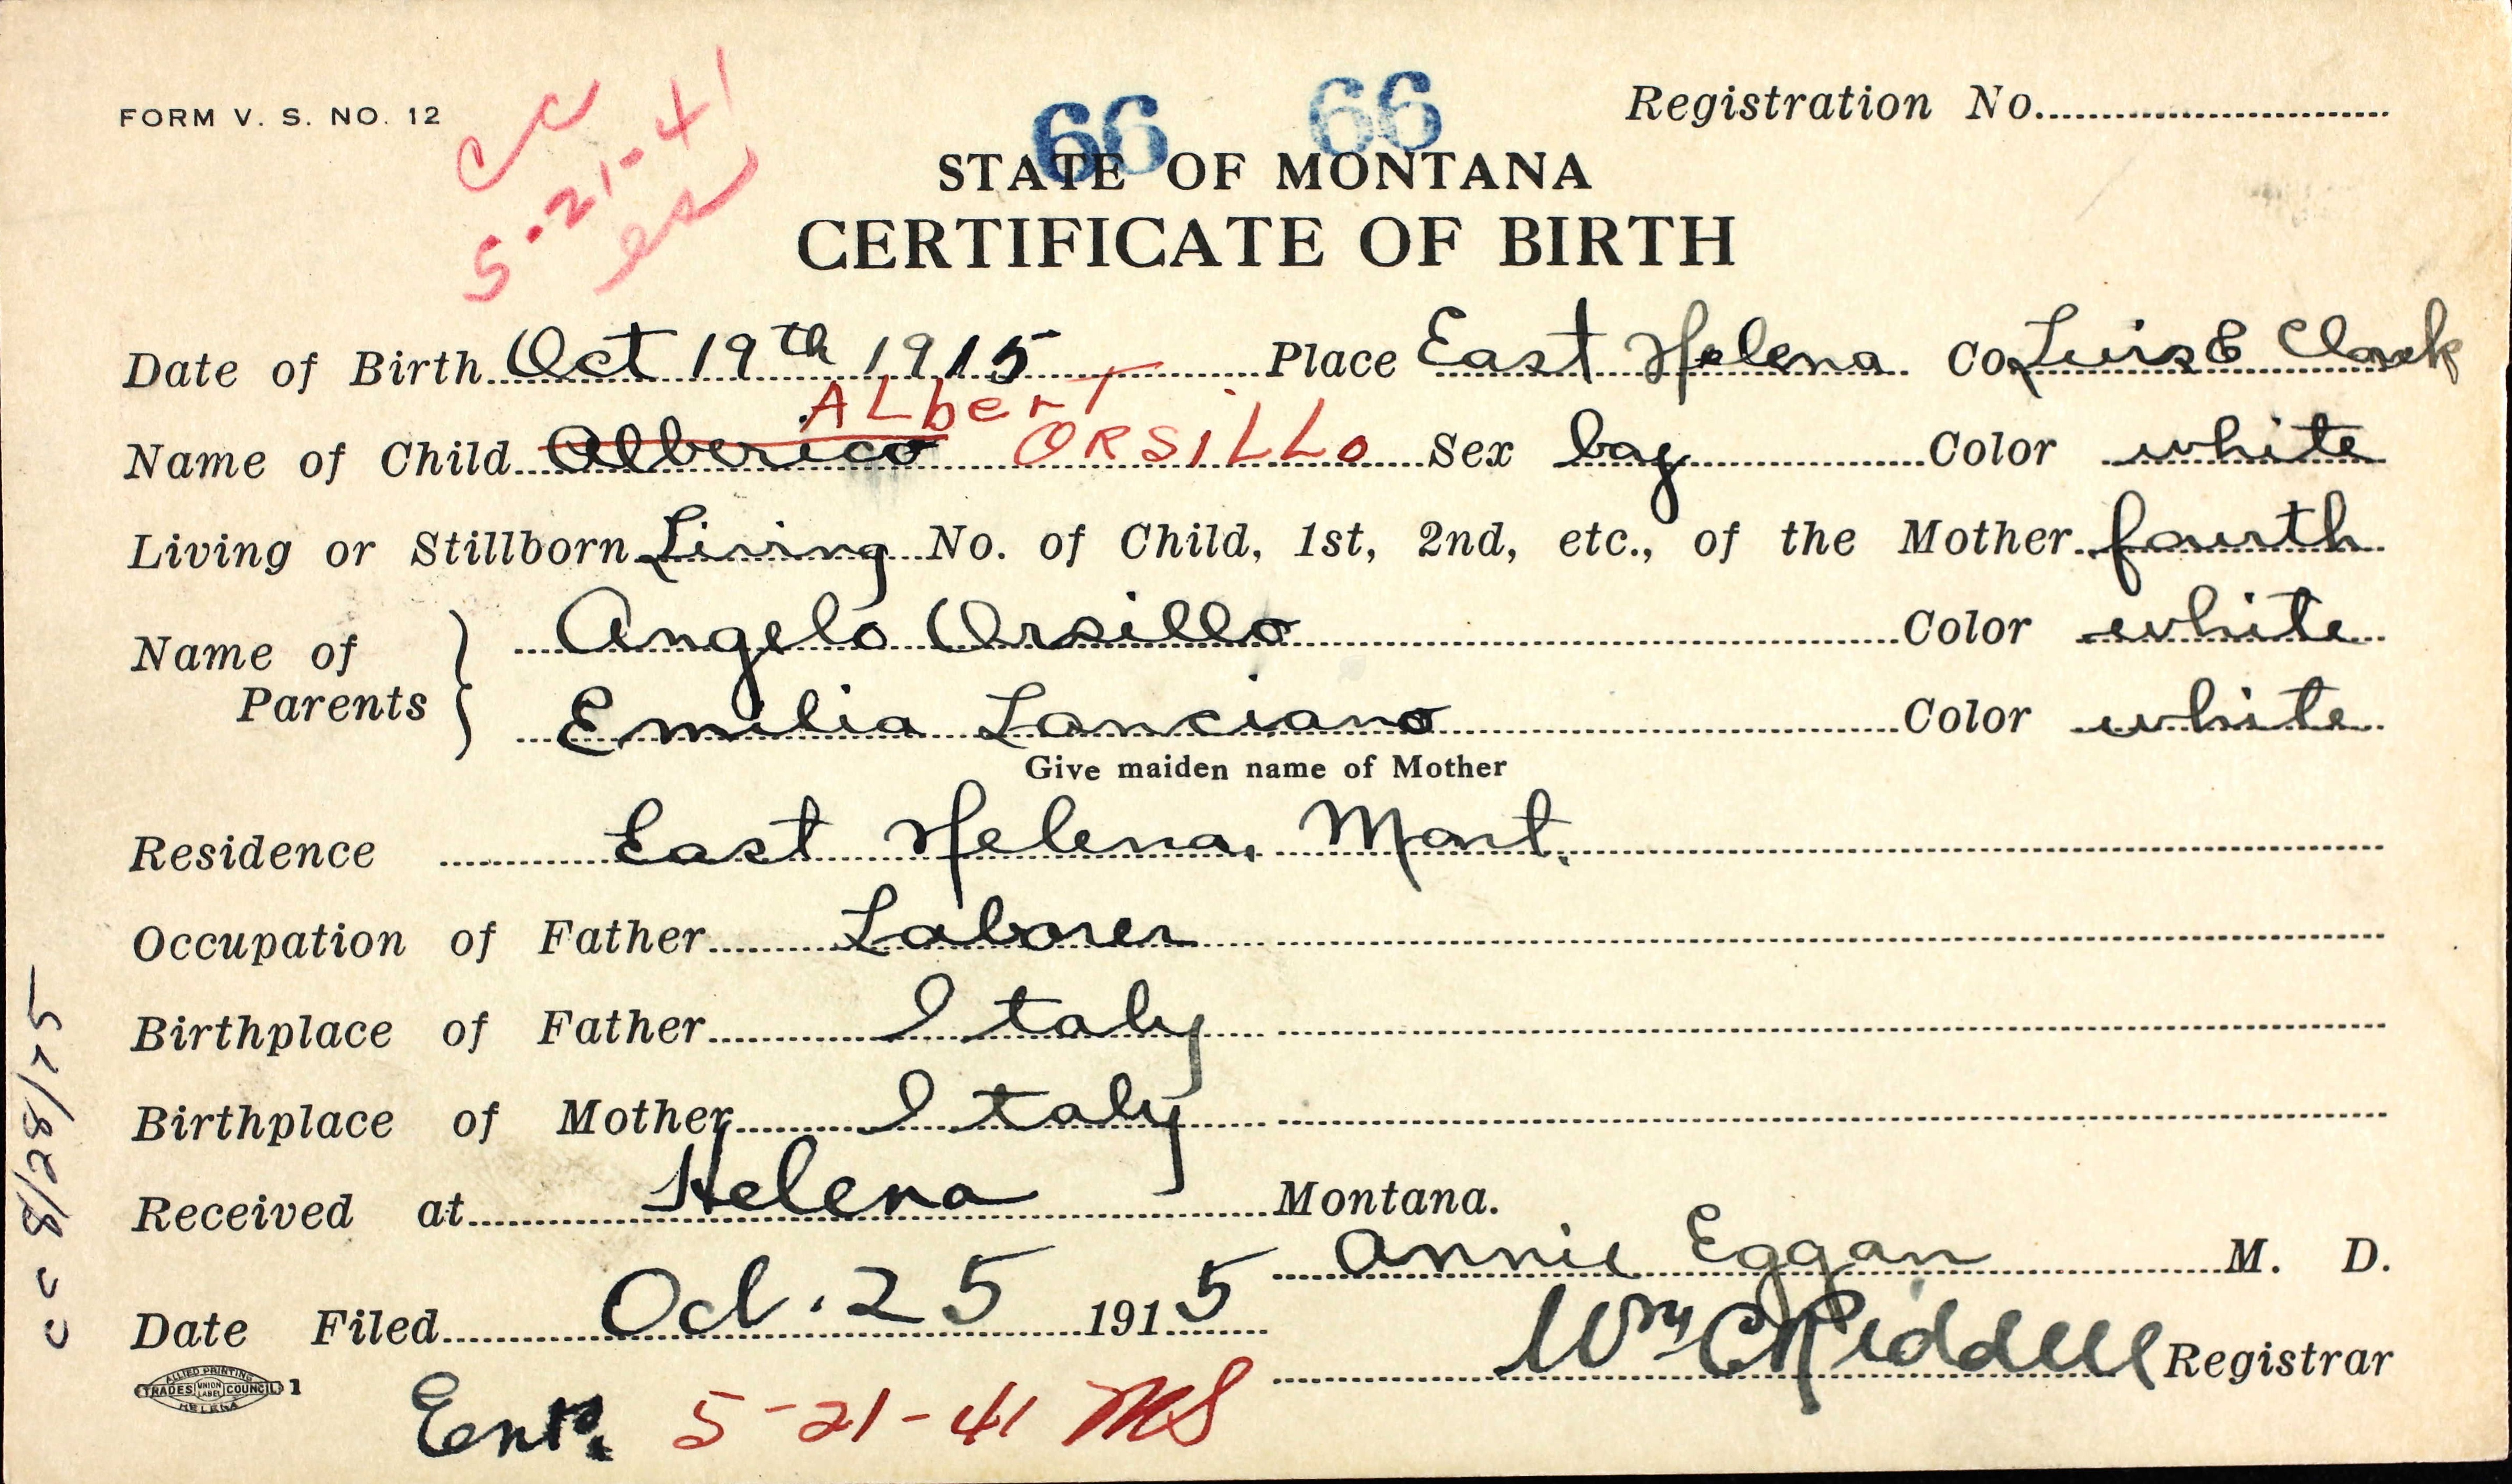 FORM V. S. NO. 12
cc
5-21-41
66 66
Registration No.
STATE OF MONTANA
CERTIFICATE OF BIRTH
Date of Birth Oct 19th 1915 Place East Helena Co Luis & Clark
Albert
Name of Child Alberico ORSILLO Sex boy Color white
Living or Stillborn Living No. of Child, 1st, 2nd, etc., of the Mother fourth
Name of Parents
Angelo Orsillo Color white
Emilia Lanciano Color white
Give maiden name of Mother
Residence East Helena, Mont.
Occupation of Father Laborer
Birthplace of Father Italy
Birthplace of Mother Italy
Received at Helena Montana.
Annie Eggan M. D.
Date Filed Oct. 25 1915
Wm C Riddell Registrar
ALLIED PRINTING
TRADES UNION LABEL COUNCIL 1
HELENA
Ent. 5-21-41 MS
cc 8/28/75